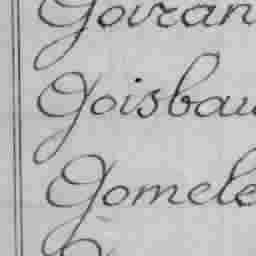 Goiran
Goisbau
Gomele